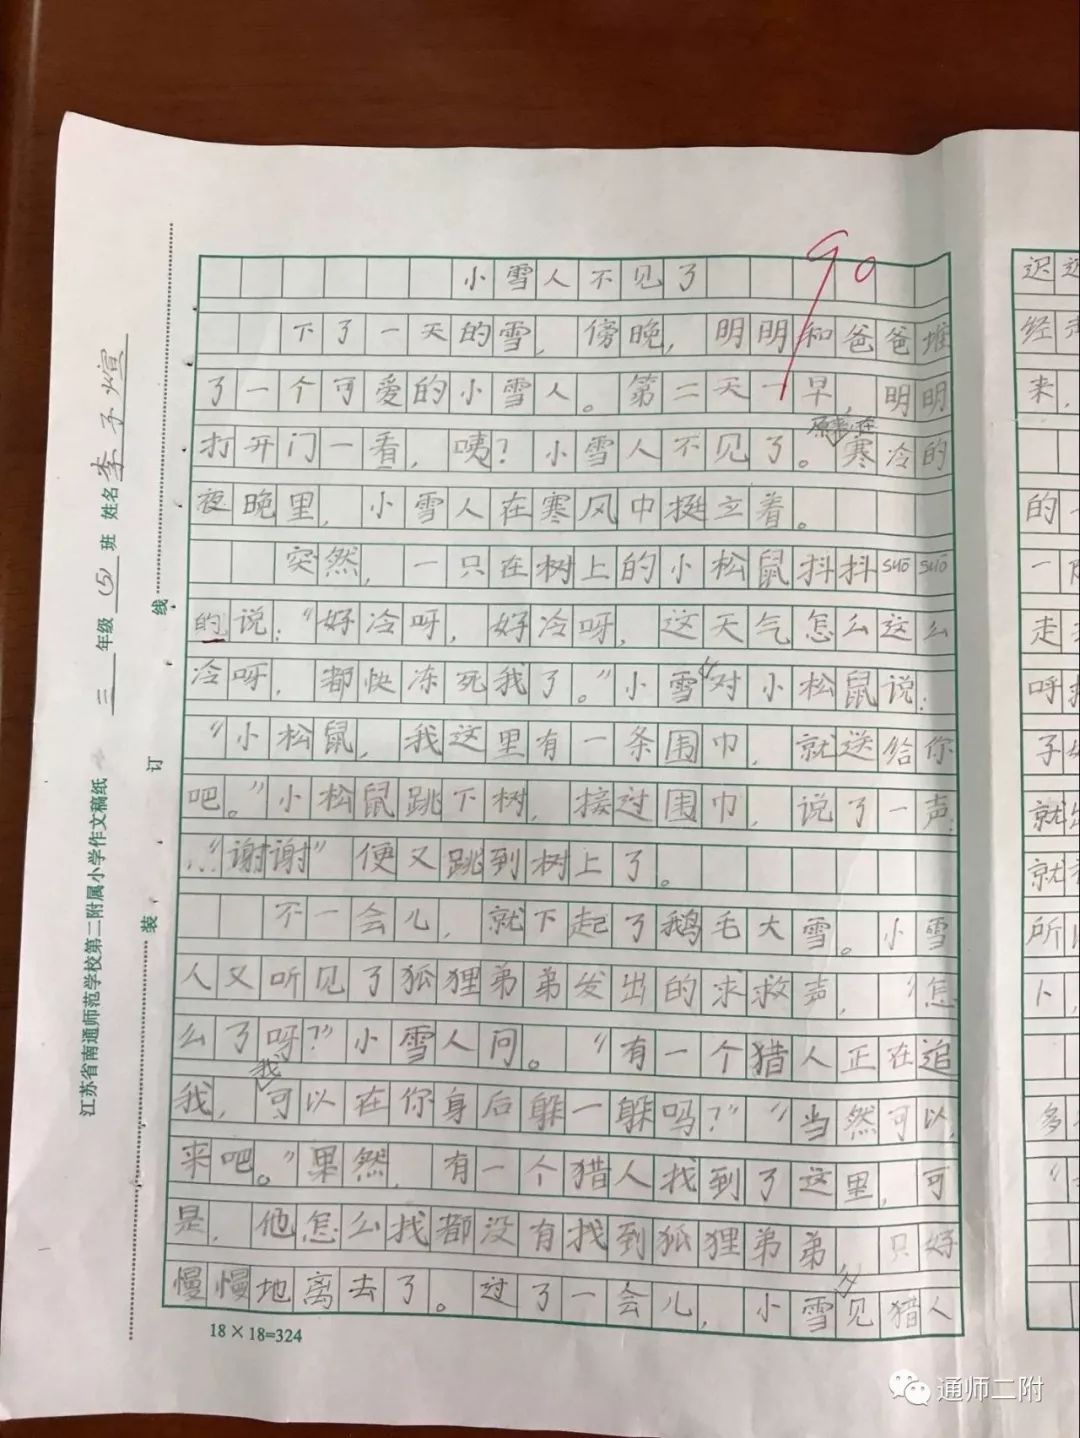 小雪人不见了
90
下了一天的雪，傍晚，明明和爸爸堆
了一个可爱的小雪人。第二天一早，明明
打开门一看，咦？小雪人不见了。原来在寒冷的
夜晚里，小雪人在寒风中挺立着。
突然，一只在树上的小松鼠抖抖suōsuō
的说：“好冷呀，好冷呀，这天气怎么这么
冷呀，都快冻死我了。”小雪人对小松鼠说：
“小松鼠，我这里有一条围巾，就送给你
吧。”小松鼠跳下树，接过围巾，说了一声
：“谢谢”便又跳到树上了。
不一会儿，就下起了鹅毛大雪。小雪
人又听见了狐狸弟弟发出的求救声，“怎
么了呀？”小雪人问。“有一个猎人正在追
我，我可以在你身后躲一躲吗？”“当然可以，
来吧。”果然，有一个猎人找到了这里，可
是，他怎么找都没有找到狐狸弟弟，只好
慢慢地离去了。过了一会儿，小雪人见猎人
18×18=324
江苏省南通师范学校第二附属小学作文稿纸 三年级(5)班 姓名李子煊
装 订 线
迟
经
来，
的一
走
呼
子
就
就
所
卜，
多
通师二附